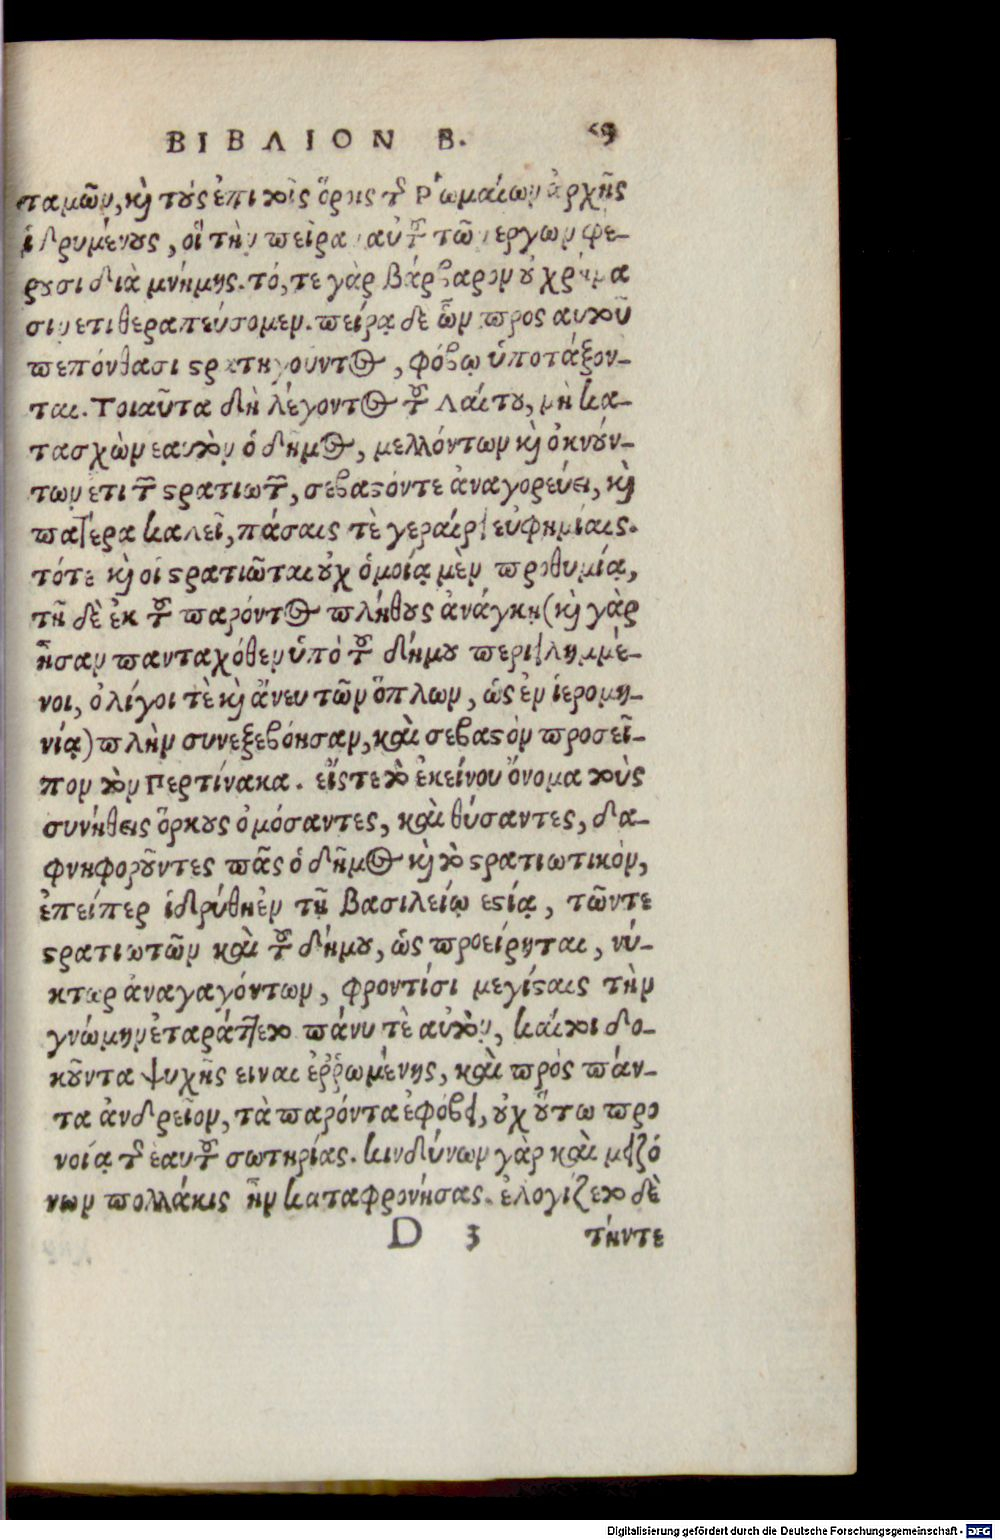 ΒΙΒΛΙΟΝ Β.
ταμῶν, καὶ τοὺς ἐπὶ τοῖς ὄχθαις τῆς Ῥωμαίων ἀρχῆς
ἱδρυμένους, οἳ τὴν πεῖραν αὐτοῦ τῶν ἔργων φέ-
ρουσι διὰ μνήμης. τό, τε γὰρ βάρβαρον οὐ χρήμα
σιν ἔτι θεραπεύσομεν. πείρᾳ δὲ ὧν πρὸς αὐτοῦ
πεπόνθασι στρατηγοῦντος, φόβῳ ὑποτάξον-
ται. Τοιαῦτα δὴ λέγοντος τοῦ Λαίτου, μὴ κα-
τασχὼν ἑαυτὸν ὁ δῆμος, μελλόντων καὶ ὀκνούν-
των ἔτι τῶν στρατιωτῶν, σεβαστόντε ἀναγορεύει, καὶ
πατέρα καλεῖ, πάσαις τὲ γεραίρει εὐφημίαις.
τότε καὶ οἱ στρατιῶται οὐχ ὁμοίᾳ μὲν προθυμίᾳ,
τῇ δὲ ἐκ τοῦ παρόντος πλήθους ἀνάγκῃ (καὶ γὰρ
ἦσαν πανταχόθεν ὑπὸ τοῦ δήμου περιειλημμέ-
νοι, ὀλίγοι τὲ καὶ ἄνευ τῶν ὅπλων, ὡς ἐν ἱερομη-
νίᾳ) πλὴν συνεξεβόησαν, καὶ σεβαστὸν προσεῖ-
πον τὸν Περτίνακα. εἴς τε τὸ ἐκείνου ὄνομα τοὺς
συνήθεις ὅρκους ὀμόσαντες, καὶ θύσαντες, δα-
φνηφοροῦντες πᾶς ὁ δῆμος καὶ τὸ στρατιωτικὸν,
ἐπείπερ ἱδρύθη ἐν τῇ βασιλείῳ ἑστίᾳ, τῶντε
στρατιωτῶν καὶ τοῦ δήμου, ὡς προείρηται, νύ-
κτωρ ἀναγαγόντων, φροντίσι μεγίσταις τὴν
γνώμην ἐταράττετο πάνυ τὲ αὐτὸν, καίτοι δο-
κοῦντα ψυχῆς εἶναι ἐῤῥωμένης, καὶ πρὸς πάν-
τα ἀνδρεῖον, τὰ παρόντα ἐφόβει, οὐχ οὕτω προ
νοίᾳ τῆς ἑαυτοῦ σωτηρίας. κινδύνων γὰρ καὶ μειζό
νων πολλάκις ἦν καταφρονήσας. ἐλογίζετο δὲ
D 3 τήντε
Digitalisierung gefördert durch die Deutsche Forschungsgemeinschaft - DFG